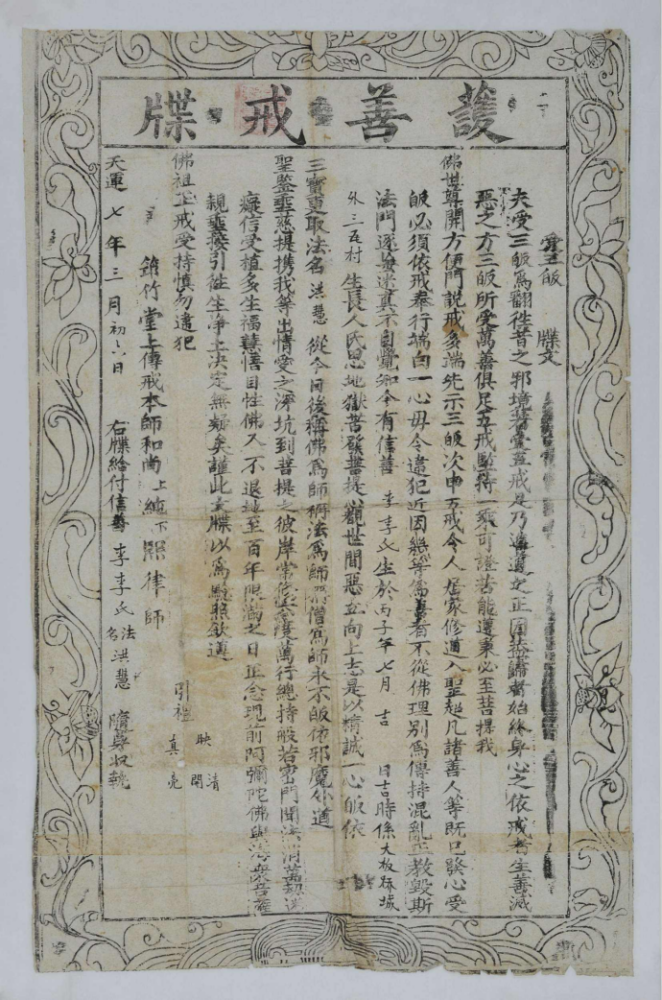 護善戒牒
受三皈 牒文
夫受三皈為翻徃昔之邪境若受五戒是乃邊道之正因皈者始終身心之依戒者生善滅
惡之方三皈所受萬善俱足五戒堅持一乘可證若能遵秉必至菩提我
佛世尊開方便門說戒多端先示三皈次申五戒令人居家修道入聖超凡諸善人等既已發心受
皈必須依戒奉行端白一心毋令違犯近因幾等為善者不從佛理別為傳持混亂正教毀斯
法門逐妄迷真不自覺知今有信善 李李氏生於丙子年七月 吉 日吉時係大板
外三瓦村 生長人民思地獄苦發菩提觀世間惡立向上志是以精誠一心皈依
三寶更取法名洪慧 從今日後稱佛為師稱法為師稱僧為師永不皈依邪魔外道
聖鑒垂慈提携我等出情愛之深坑到菩提之彼岸常修六度萬行總持般若密門聞法消萬劫
癡信受植多生福慧悟自性佛入不退地至百年限滿之日正念現前阿彌陀佛與海眾菩薩
親垂接引徃生淨土決定無疑矣謹此文牒以為照欽遵
佛祖正戒受持慎勿違犯
引禮 映清 真開亮
筇竹堂上傳戒本師和尚上純下 律師
右牒給付信善 李李氏法名洪慧 隨身收執
天運七年三月初六日